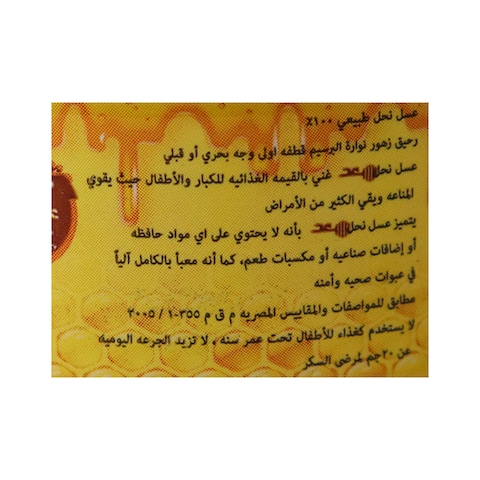 عسل نحل طبيعي ١٠٠٪
رحيق زهور نوارة البرسيم قطفه اولى وجه بحري أو قبلي
عسل نحل سعد غني بالقيمه الغذائيه للكبار والأطفال حيث يقوي
المناعه ويقي الكثير من الأمراض
يتميز عسل نحل سعد بأنه لا يحتوي على اي مواد حافظه
أو إضافات صناعيه أو مكسبات طعم، كما أنه معبأ بالكامل آلياً
في عبوات صحيه وأمنه
مطابق للمواصفات والمقاييس المصريه م ق م ٣٥٥-١ / ٢٠٠٥
لا يستخدم كغذاء للأطفال تحت عمر سنه ، لا تزيد الجرعه اليوميه
عن ٢٠جم لمرضى السكر